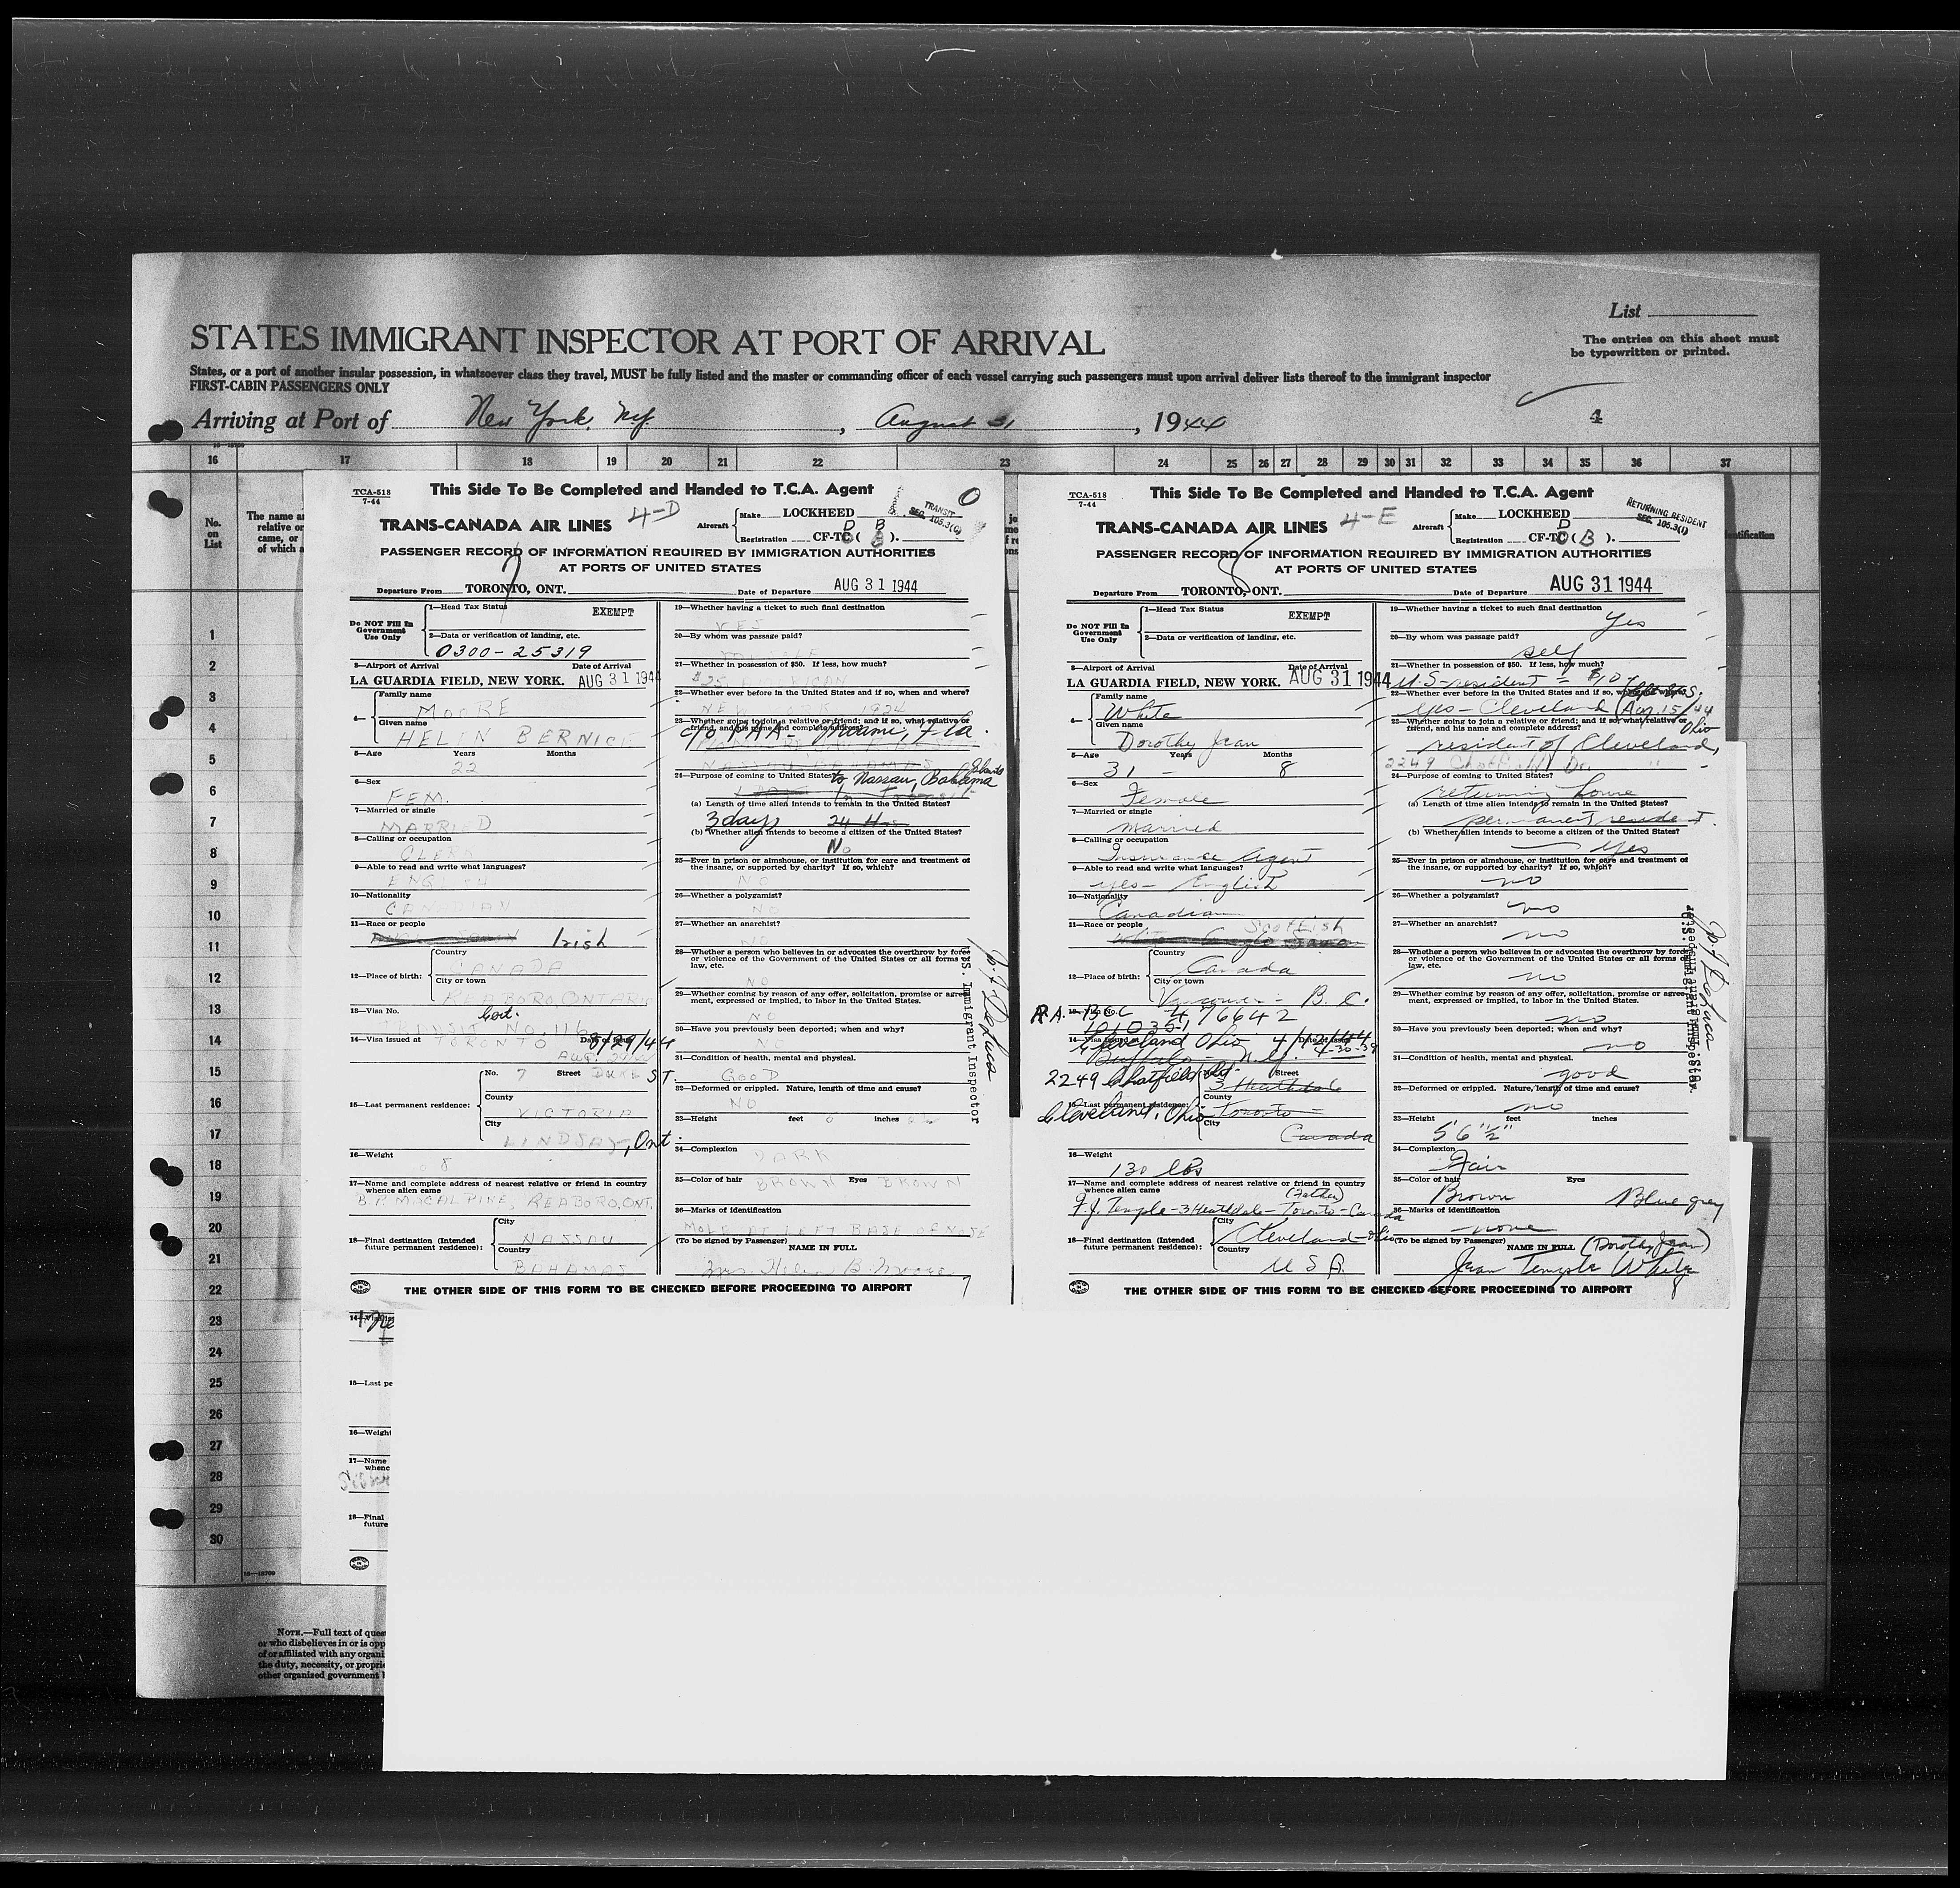 List
STATES IMMIGRANT INSPECTOR AT PORT OF ARRIVAL
The entries on this sheet must
be typewritten or printed.
States, or a port of another insular possession, in whatsoever class they travel, MUST be fully listed and the master or commanding officer of each vessel carrying such passengers must upon arrival deliver lists thereof to the immigrant inspector
FIRST-CABIN PASSENGERS ONLY
Arriving at Port of New York, N.Y., August 31, 1944
4
16 17 18 19 20 21 22 23 24 25 26 27 28 29 30 31 32 33 34 35 36 37
No.
on
List
The name a
relative or
came, or
of which a
1
2
3
4
5
6
7
8
9
10
11
12
13
14
15
16
17
18
19
20
21
22
23
24
25
26
27
28
29
30
TCA-518
7-44
This Side To Be Completed and Handed to T.C.A. Agent
0
TRANS-CANADA AIR LINES 4-D
Aircraft Make LOCKHEED
Registration CF-TC ( B ).
TRANSIT
SEC. 105.3(G)
PASSENGER RECORD OF INFORMATION REQUIRED BY IMMIGRATION AUTHORITIES
AT PORTS OF UNITED STATES
7
Departure From TORONTO, ONT. Date of Departure AUG 31 1944
Do NOT Fill In
Government
Use Only
1—Head Tax Status EXEMPT
2—Data or verification of landing, etc.
0300-25319
3—Airport of Arrival Date of Arrival
LA GUARDIA FIELD, NEW YORK. AUG 31 1944
4— Family name
MOORE
Given name
HELEN BERNICE
5—Age Years Months
22
6—Sex
FEM.
7—Married or single
MARRIED
8—Calling or occupation
CLERK
9—Able to read and write what languages?
ENGLISH
10—Nationality
CANADIAN
11—Race or people
Irish
12—Place of birth: Country
CANADA
City or town
REABORO, ONTARIO
13—Visa No. Cert.
TRANSIT NO. 116
14—Visa issued at Date of Issue
TORONTO 8/29/44
15—Last permanent residence: No. 7 Street DUKE ST.
County
VICTORIA
City
LINDSAY, Ont.
16—Weight
17—Name and complete address of nearest relative or friend in country
whence alien came
B.R. MCCALPINE, REABORO, ONT.
18—Final destination (Intended
future permanent residence): City
NASSAU
Country
BAHAMAS
19—Whether having a ticket to such final destination
YES
20—By whom was passage paid?
21—Whether in possession of $50. If less, how much?
$25. AMERICAN
22—Whether ever before in the United States and if so, when and where?
NEW YORK 1924
23—Whether going to join a relative or friend; and if so, what relative or
friend, and his name and complete address?
c/o PAA - Miami, Fla.
24—Purpose of coming to United States?
to Nassau, Bahama
(a) Length of time alien intends to remain in the United States?
3 days 24 Hrs
(b) Whether alien intends to become a citizen of the United States?
No
25—Ever in prison or almshouse, or institution for care and treatment of
the insane, or supported by charity? If so, which?
NO
26—Whether a polygamist?
NO
27—Whether an anarchist?
NO
28—Whether a person who believes in or advocates the overthrow by force
or violence of the Government of the United States or all forms of
law, etc.
NO
29—Whether coming by reason of any offer, solicitation, promise or agree-
ment, expressed or implied, to labor in the United States.
NO
30—Have you previously been deported; when and why?
NO
31—Condition of health, mental and physical.
GOOD
32—Deformed or crippled. Nature, length of time and cause?
NO
33—Height feet inches
34—Complexion
DARK
35—Color of hair BROWN Eyes BROWN
36—Marks of identification
MOLE AT LEFT BASE OF NOSE
(To be signed by Passenger) NAME IN FULL
Mrs. Helen B. Moore
THE OTHER SIDE OF THIS FORM TO BE CHECKED BEFORE PROCEEDING TO AIRPORT
7
U.S. Immigrant Inspector
TCA-518
7-44
This Side To Be Completed and Handed to T.C.A. Agent
TRANS-CANADA AIR LINES 4-E
Aircraft Make LOCKHEED
Registration CF-TC ( B ).
RETURNING RESIDENT
SEC. 105.3(I)
PASSENGER RECORD OF INFORMATION REQUIRED BY IMMIGRATION AUTHORITIES
AT PORTS OF UNITED STATES
8
Departure From TORONTO, ONT. Date of Departure AUG 31 1944
Do NOT Fill In
Government
Use Only
1—Head Tax Status EXEMPT
2—Data or verification of landing, etc.
3—Airport of Arrival Date of Arrival
LA GUARDIA FIELD, NEW YORK. AUG 31 1944
4— Family name
White
Given name
Dorothy Jean
5—Age Years Months
31 - 8
6—Sex
Female
7—Married or single
married
8—Calling or occupation
Insurance Agent
9—Able to read and write what languages?
yes - English
10—Nationality
Canadian
11—Race or people Scottish
White - Anglo Saxon
12—Place of birth: Country
Canada
City or town
Vancouver - B.C.
13—Visa No.
R.A. BCC 476642
1010351
14—Visa issued at Date of Issue
Cleveland Ohio 4/12/44
Buffalo - N.Y. 4-30-39
2249 Chatfield Street
3 Heathdale
15—Last permanent residence: County
Cleveland, Ohio Toronto
City
Canada
16—Weight
130 lbs
17—Name and complete address of nearest relative or friend in country
whence alien came (Father)
F.J. Temple - 3 Heathdale - Toronto - Canada
18—Final destination (Intended
future permanent residence): City
Cleveland - Ohio
Country
U S A.
19—Whether having a ticket to such final destination
Yes
20—By whom was passage paid?
self
21—Whether in possession of $50. If less, how much?
U.S. resident = $10
22—Whether ever before in the United States and if so, when and where?
yes - Cleveland (Aug. 15/44
23—Whether going to join a relative or friend; and if so, what relative or
friend, and his name and complete address? Ohio
resident of Cleveland,
2249 Chatfield Dr. "
24—Purpose of coming to United States?
returning home
(a) Length of time alien intends to remain in the United States?
permanent resident.
(b) Whether alien intends to become a citizen of the United States?
yes
25—Ever in prison or almshouse, or institution for care and treatment of
the insane, or supported by charity? If so, which?
no
26—Whether a polygamist?
no
27—Whether an anarchist?
no
28—Whether a person who believes in or advocates the overthrow by force
or violence of the Government of the United States or all forms of
law, etc.
no
29—Whether coming by reason of any offer, solicitation, promise or agree-
ment, expressed or implied, to labor in the United States.
no
30—Have you previously been deported; when and why?
no
31—Condition of health, mental and physical.
good
32—Deformed or crippled. Nature, length of time and cause?
no
33—Height feet inches
5'6 ½"
34—Complexion
Fair
35—Color of hair Eyes
Brown Blue grey
36—Marks of identification
none
(To be signed by Passenger) NAME IN FULL (Dorothy Jean)
Jean Temple White
THE OTHER SIDE OF THIS FORM TO BE CHECKED BEFORE PROCEEDING TO AIRPORT
8
U.S. Immigrant Inspector
15—Last pe
16—Weight
17—Name
whenc
18—Final
future
NOTE.—Full text of ques
or who disbelieves in or is opp
of or affiliated with any organi
the duty, necessity, or proprie
other organised government